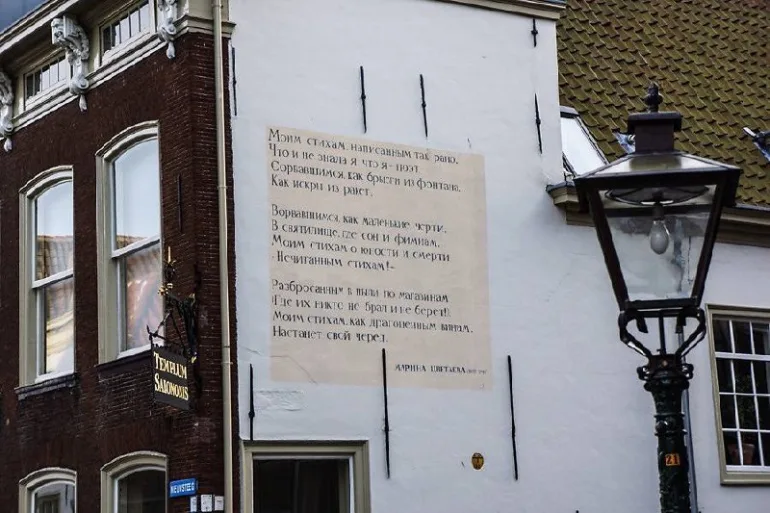 Моим стихам, написанным так рано,
Что и не знала я, что я - поэт,
Сорвавшимся, как брызги из фонтана,
Как искри из ракет,
Ворвавшимся, как маленькие черти,
В святилище, где сон и фимиам,
Моим стихам о юности и смерти
- Нечитанным стихам! -
Разбросанным в пыли по магазинам
(Где их никто не брал и не берет!)
Моим стихам, как драгоценным винам,
Настанет свой черед.
МАРИНА ЦВЕТАЕВА
TEMPLUM
SALOMONIS
NIEUWSTEEG
21